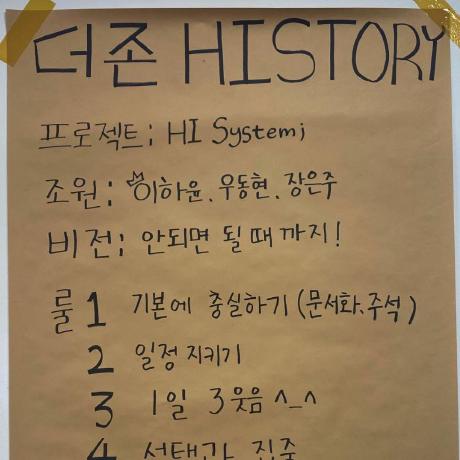 더존 HISTORY
프로젝트; HI System;
조원; 이하윤, 우동현, 장은주
비전; 안되면 될 때 까지!
룰 1 기본에 충실하기 (문서화, 주석)
2 일정 지키기
3 1일 3웃음 ^_^
4 선택과 집중